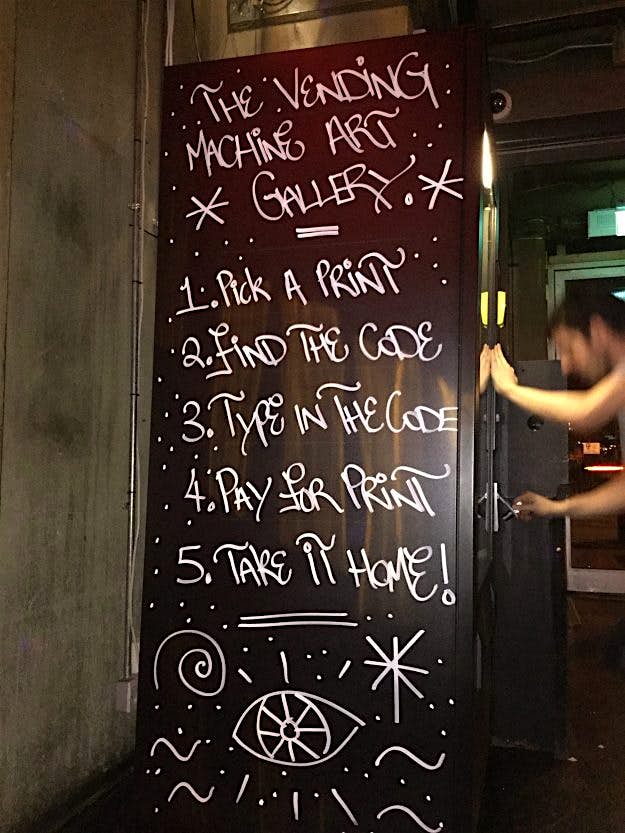 THE VENDING
MACHINE ART
GALLERY.
1. Pick A PRiNT
2. FIND THE CODE
3. TYPE IN THE CODE
4. PAY FOR PRINT
5. TAKE IT HOME!